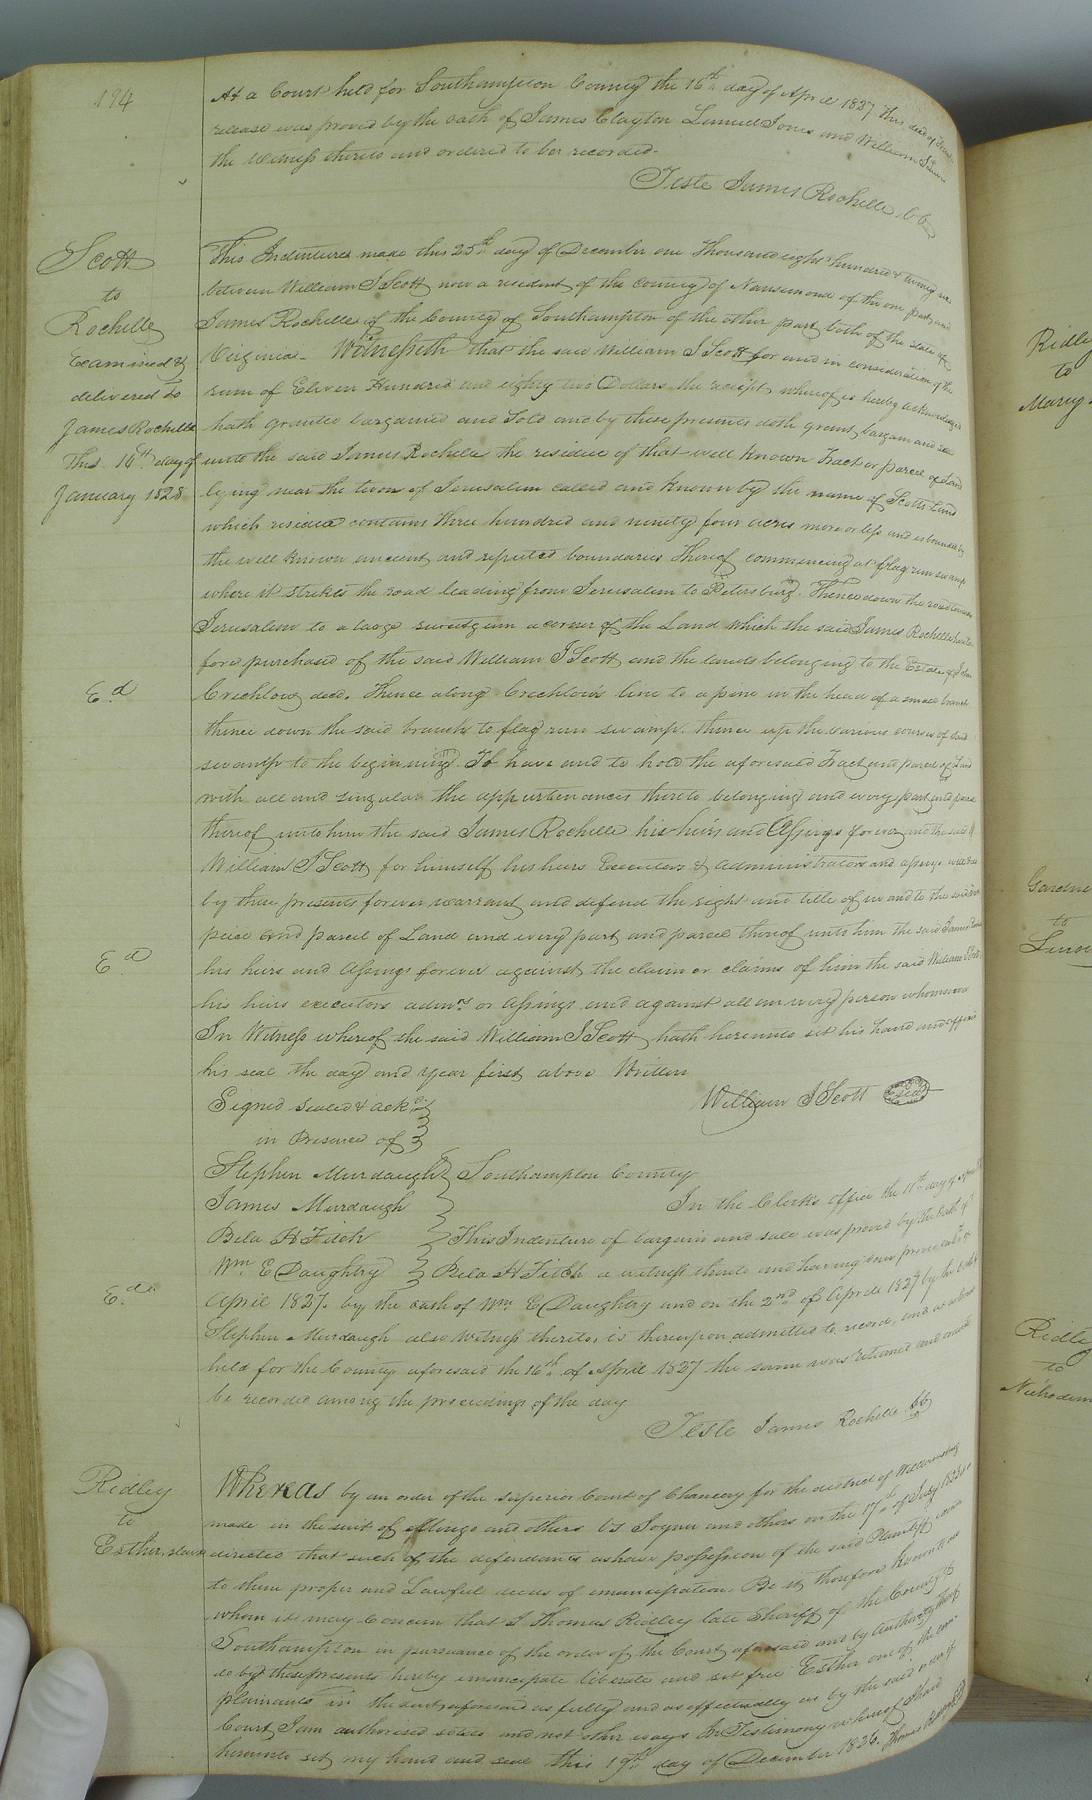 194
At a Court held for Southampton County the 16th day of April 1827 this deed of
release was proved by the oath of James Clayton Lemuel Jones and William
the witness thereto and ordered to be recorded.
Teste James Rochelle CC
Scott
to
Rochelle
Examined &
delivered to
James Rochelle
this 16th day of
January 1828
This Indenture made this 25th day of December one thousand eight hundred & twenty
between William J Scott now a resident of the county of Nansemond of the one part and
James Rochelle of the County of Southampton of the other part both of the state of
Virginia - Witnesseth that the said William J Scott for and in consideration of the
sum of Eleven Hundred and eighty two Dollars the receipt whereof is hereby acknowledged
hath granted bargained and sold and by these presents doth grant bargain and sell
unto the said James Rochelle the residue of that well known Tract or parcel of Land
lying near the town of Jerusalem called and known by the name of Scotts Land
which residue contains three hundred and ninety four acres more or less and is bounded by
the well known ancient and reputed boundaries thereof commencing at flag run swamp
where it strikes the road leading from Jerusalem to Petersburg. Thence down the road towards
Jerusalem to a large sweetgum a corner of the Land which the said James Rochelle
fore purchased of the said William J Scott and the lands belonging to the Estate of John
Crichlow decd. Thence along Crichlow's line to a pine in the head of a small branch
thence down the said branch to flag run swamp. thence up the various courses of said
swamp to the beginning. To have and to hold the aforesaid Tract and parcel of Land
with all and singular the appurtenances thereto belonging and every part and parcel
thereof unto him the said James Rochelle his heirs and Assings forever and the said
William J Scott for himself his heirs Executors & administrators and assings
by these presents forever warrant and defend the right and title of in and to the said
peice and parcel of Land and every part and parcel thereof unto him the said James
his heirs and Assings forever against the claim or claims of him the said William J Scott
his heirs executors admrs or Assings and against all an every person whomsoever
In Witness whereof the said William J Scott hath hereunto set his hand and affixed
his seal the day and year first above Written
Ed
Ed
Signed sealed & ackd
in Presence of
William J Scott Seal
Stephen Murdaugh
James Murdaugh
Bela H Fitch
Wm E Daughtry
Southampton County
In the Clerks office the 11th day of
This Indenture of bargain and sale was proved by the oath of
Bela H Fitch a witness thereto and having
April 1827. by the oath of Wm E Daughtry and on the 2nd of April 1827 by the oath
Stephen Murdaugh also Witness thereto, is thereupon admitted to record, and
held for the County aforesaid the 16th of April 1827 the same was returned and
be recorded among the proceedings of the day
Teste James Rochelle CC
Ridley
to
Esther, slave
Whereas by an order of the superior Court of Chancery for the district of Williamsburg
made in the suit of Mongo and others vs Joyner and others on the 17th of July
directed that such of the defendants as have possession of the said Plaintiff
to them proper and Lawful deeds of emancipation. Be it therefore known to all
whom it may Concern that I Thomas Ridley late Sheriff of the County of
Southampton in pursuance of the order of the Court aforesaid and by Authority thereof
do by these presents hereby emancipate liberate and set free Esther one of the
plaintants in the suit aforesaid as fully and as effectually as by the said order of
Court I am authorised so to do and not other ways In Testimony whereof I have
hereunto set my hand and seal this 19th day of December 1826. Thomas Ridley
Ridley
to
Mary
to
Ridley
to